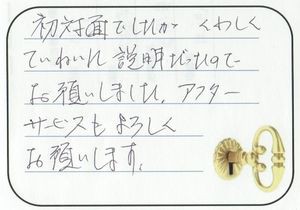 初対面でしたが くわしく
ていねいに 説明だったので
お願いしました。アフター
サービスも よろしく
お願いします。